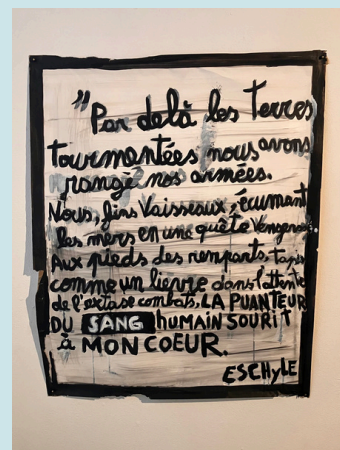 "Par delà les Terres
tourmentées nous avons
rangé nos armées.
Nous, fins Vaisseaux, écumant
les mers en une quête Vengeresse
Aux pieds des remparts, tapis
comme un lievre dans l'attente
de l'extase combats. LA PUANTEUR
DU SANG humain SOURIT
à MON COEUR.
ESCHyLE